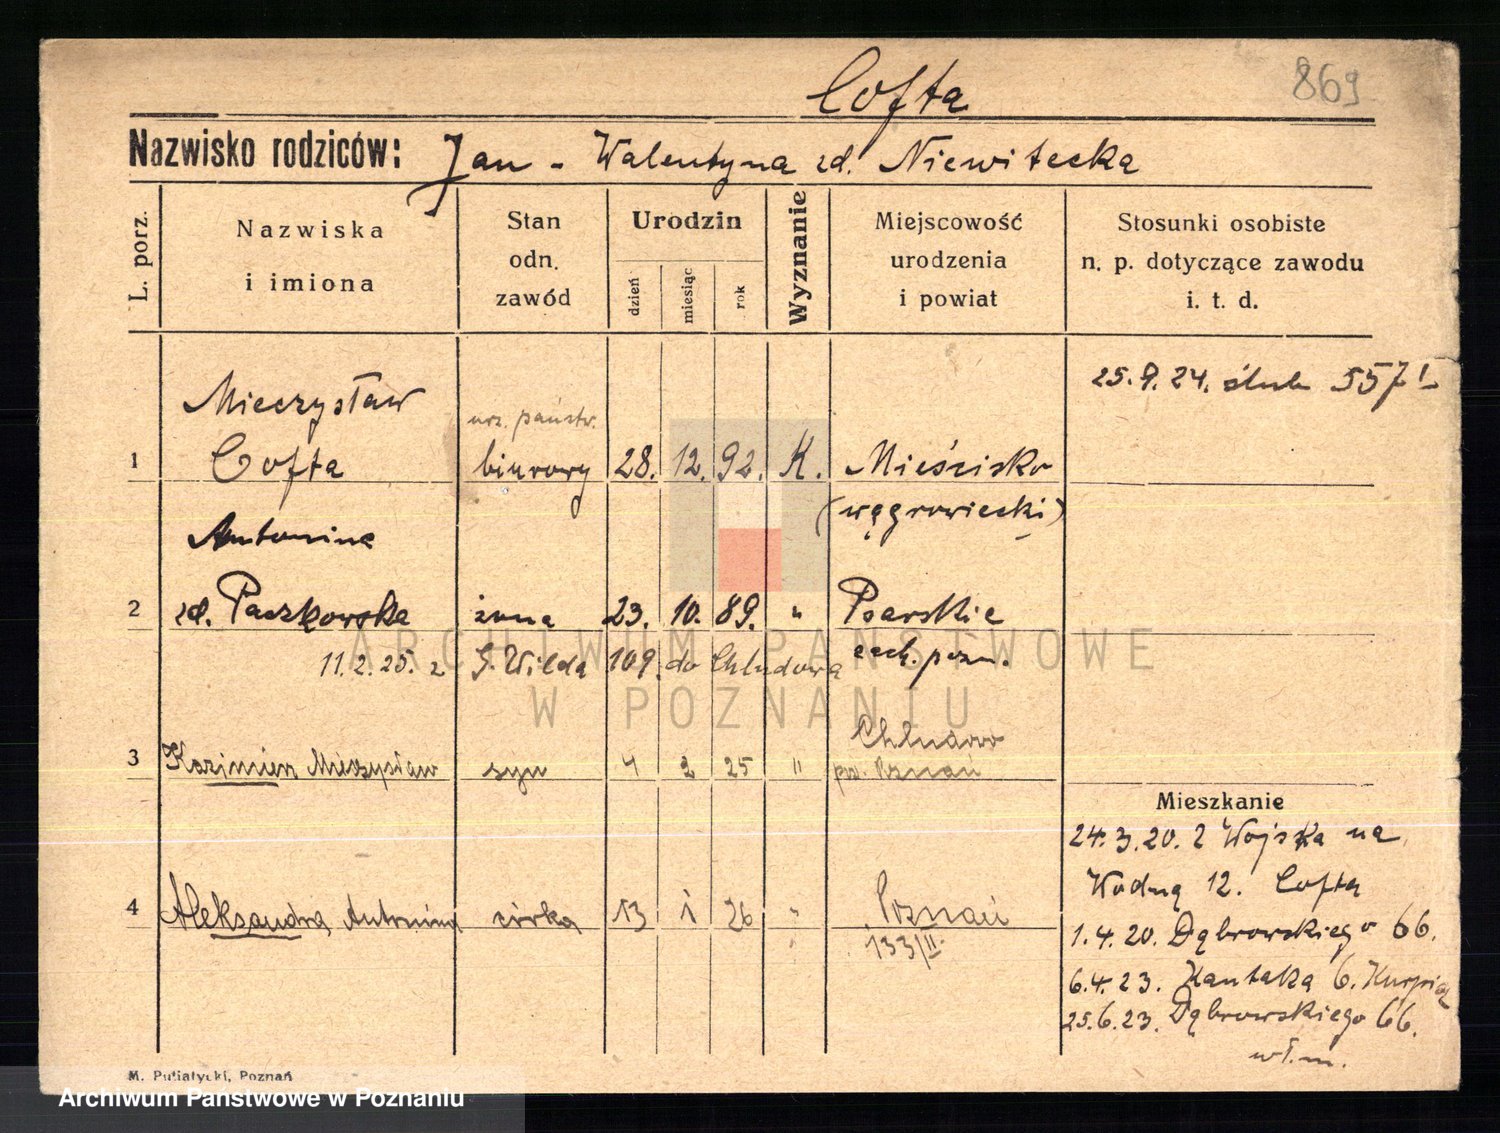 Cofta
869
Nazwisko rodziców: Jan - Walentyna zd. Niewitecka
L. porz.
Nazwiska
i imiona
Stan
odn.
zawód
Urodzin
dzień
miesiąc
rok
Wyznanie
Miejscowość
urodzenia
i powiat
Stosunki osobiste
n. p. dotyczące zawodu
i. t. d.
25.9.24. ślub 557 I
Mieczysław
urz. państw.
1 Cofta biurowy 28. 12. 92. K. Mieścisko
(wągrowiecki)
Antonina
2 zd. Paczkowska żona 23. 10. 89. " Psarskie
zach. pozn.
11.2.25. z G. Wilda 109. do Chludowa
Chludowo
3 Kazimierz Mieczysław syn 4 2 25 " pw. Poznań
Mieszkanie
24.3.20. z Wojska na
Wodną 12. Cofta
4 Aleksandra Antonina córka 13 1 26 " Poznań
133/II.
1.4.20. Dąbrowskiego 66.
6.4.23. Kantaka 6.
25.6.23. Dąbrowskiego 66.
wł.m.
M. Putiatycki, Poznań
ARCHIWUM PAŃSTWOWE
W POZNANIU
Archiwum Państwowe w Poznaniu